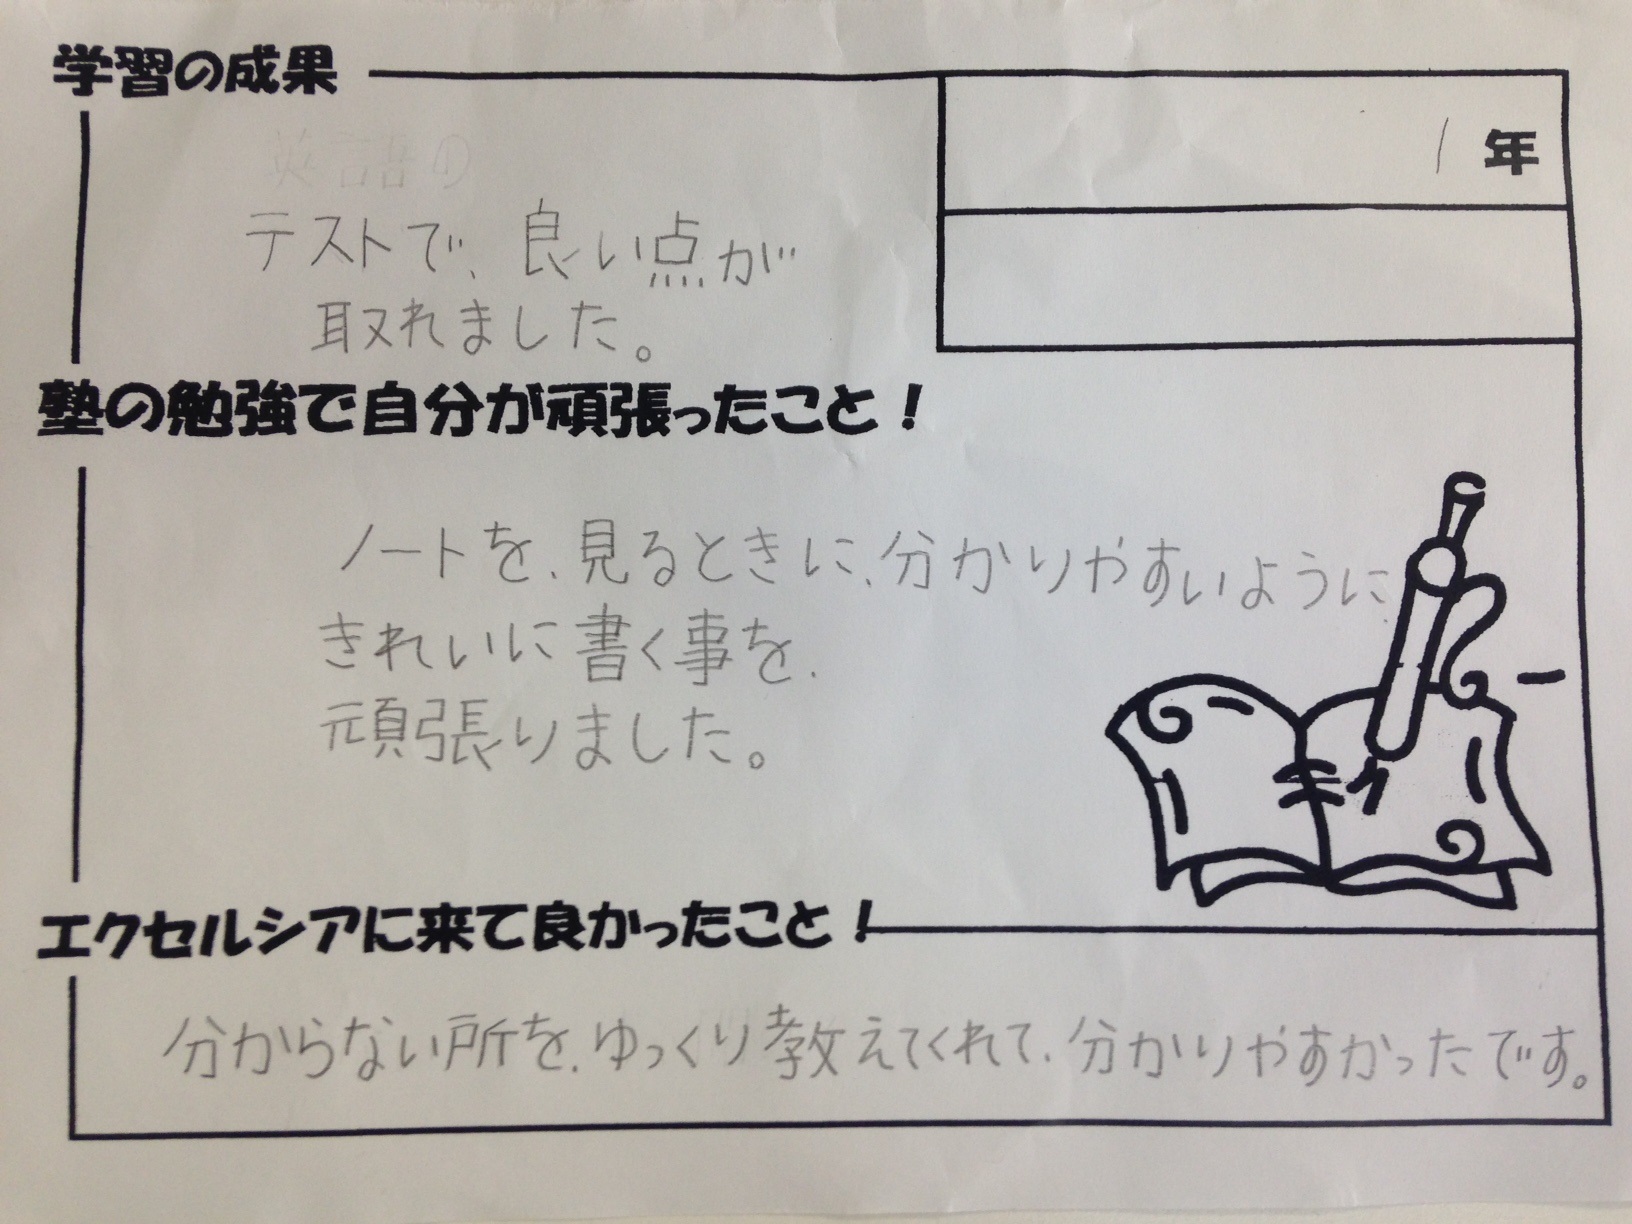 学習の成果
1年
英語の
テストで、良い点が
取れました。
塾の勉強で自分が頑張ったこと！
ノートを、見るときに、分かりやすいように
きれいに書く事を、
頑張りました。
エクセルシアに来て良かったこと！
分からない所を、ゆっくり教えてくれて、分かりやすかったです。